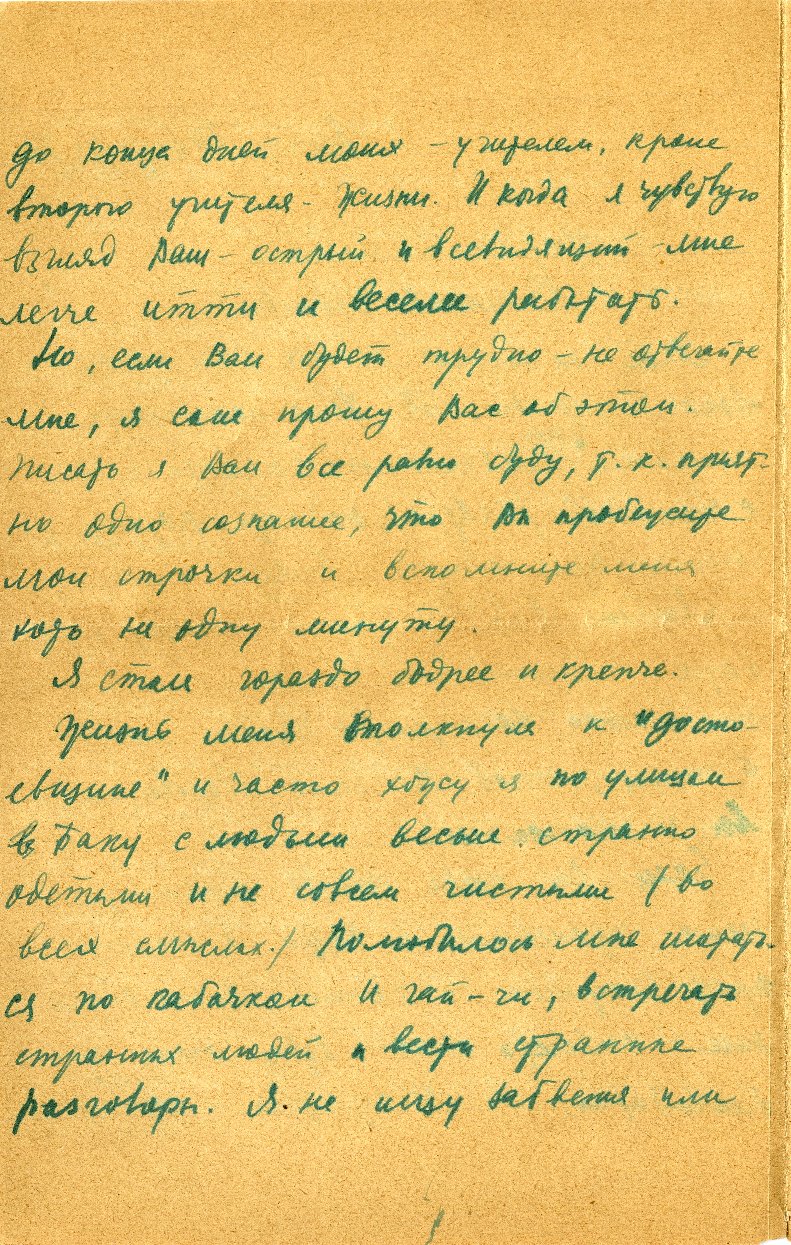 до конца дней моих – учителем, кроме
второго учителя – Жизни. И когда я чувствую
взгляд Ваш – острый и всевидящий – мне
легче итти и веселее работать.
Но, если Вам будет трудно – не отвечайте
мне, я сам прошу Вас об этом.
Писать я Вам все равно буду, т. к. прият-
но одно сознание, что Вы пробежите
мои строчки и вспомните меня
хоть на одну минуту.
Я стал гораздо бодрее и крепче.
Жизнь меня втолкнула к "досто-
евщине" и часто хожу я по улицам
в Баку с людьми весьма странно
одетыми и не совсем чистыми (во
всех смыслах.) Полюбилось мне шатать-
ся по кабачкам и чай-чи, встречать
странных людей и вести странные
разговоры. Я не ищу забвения или